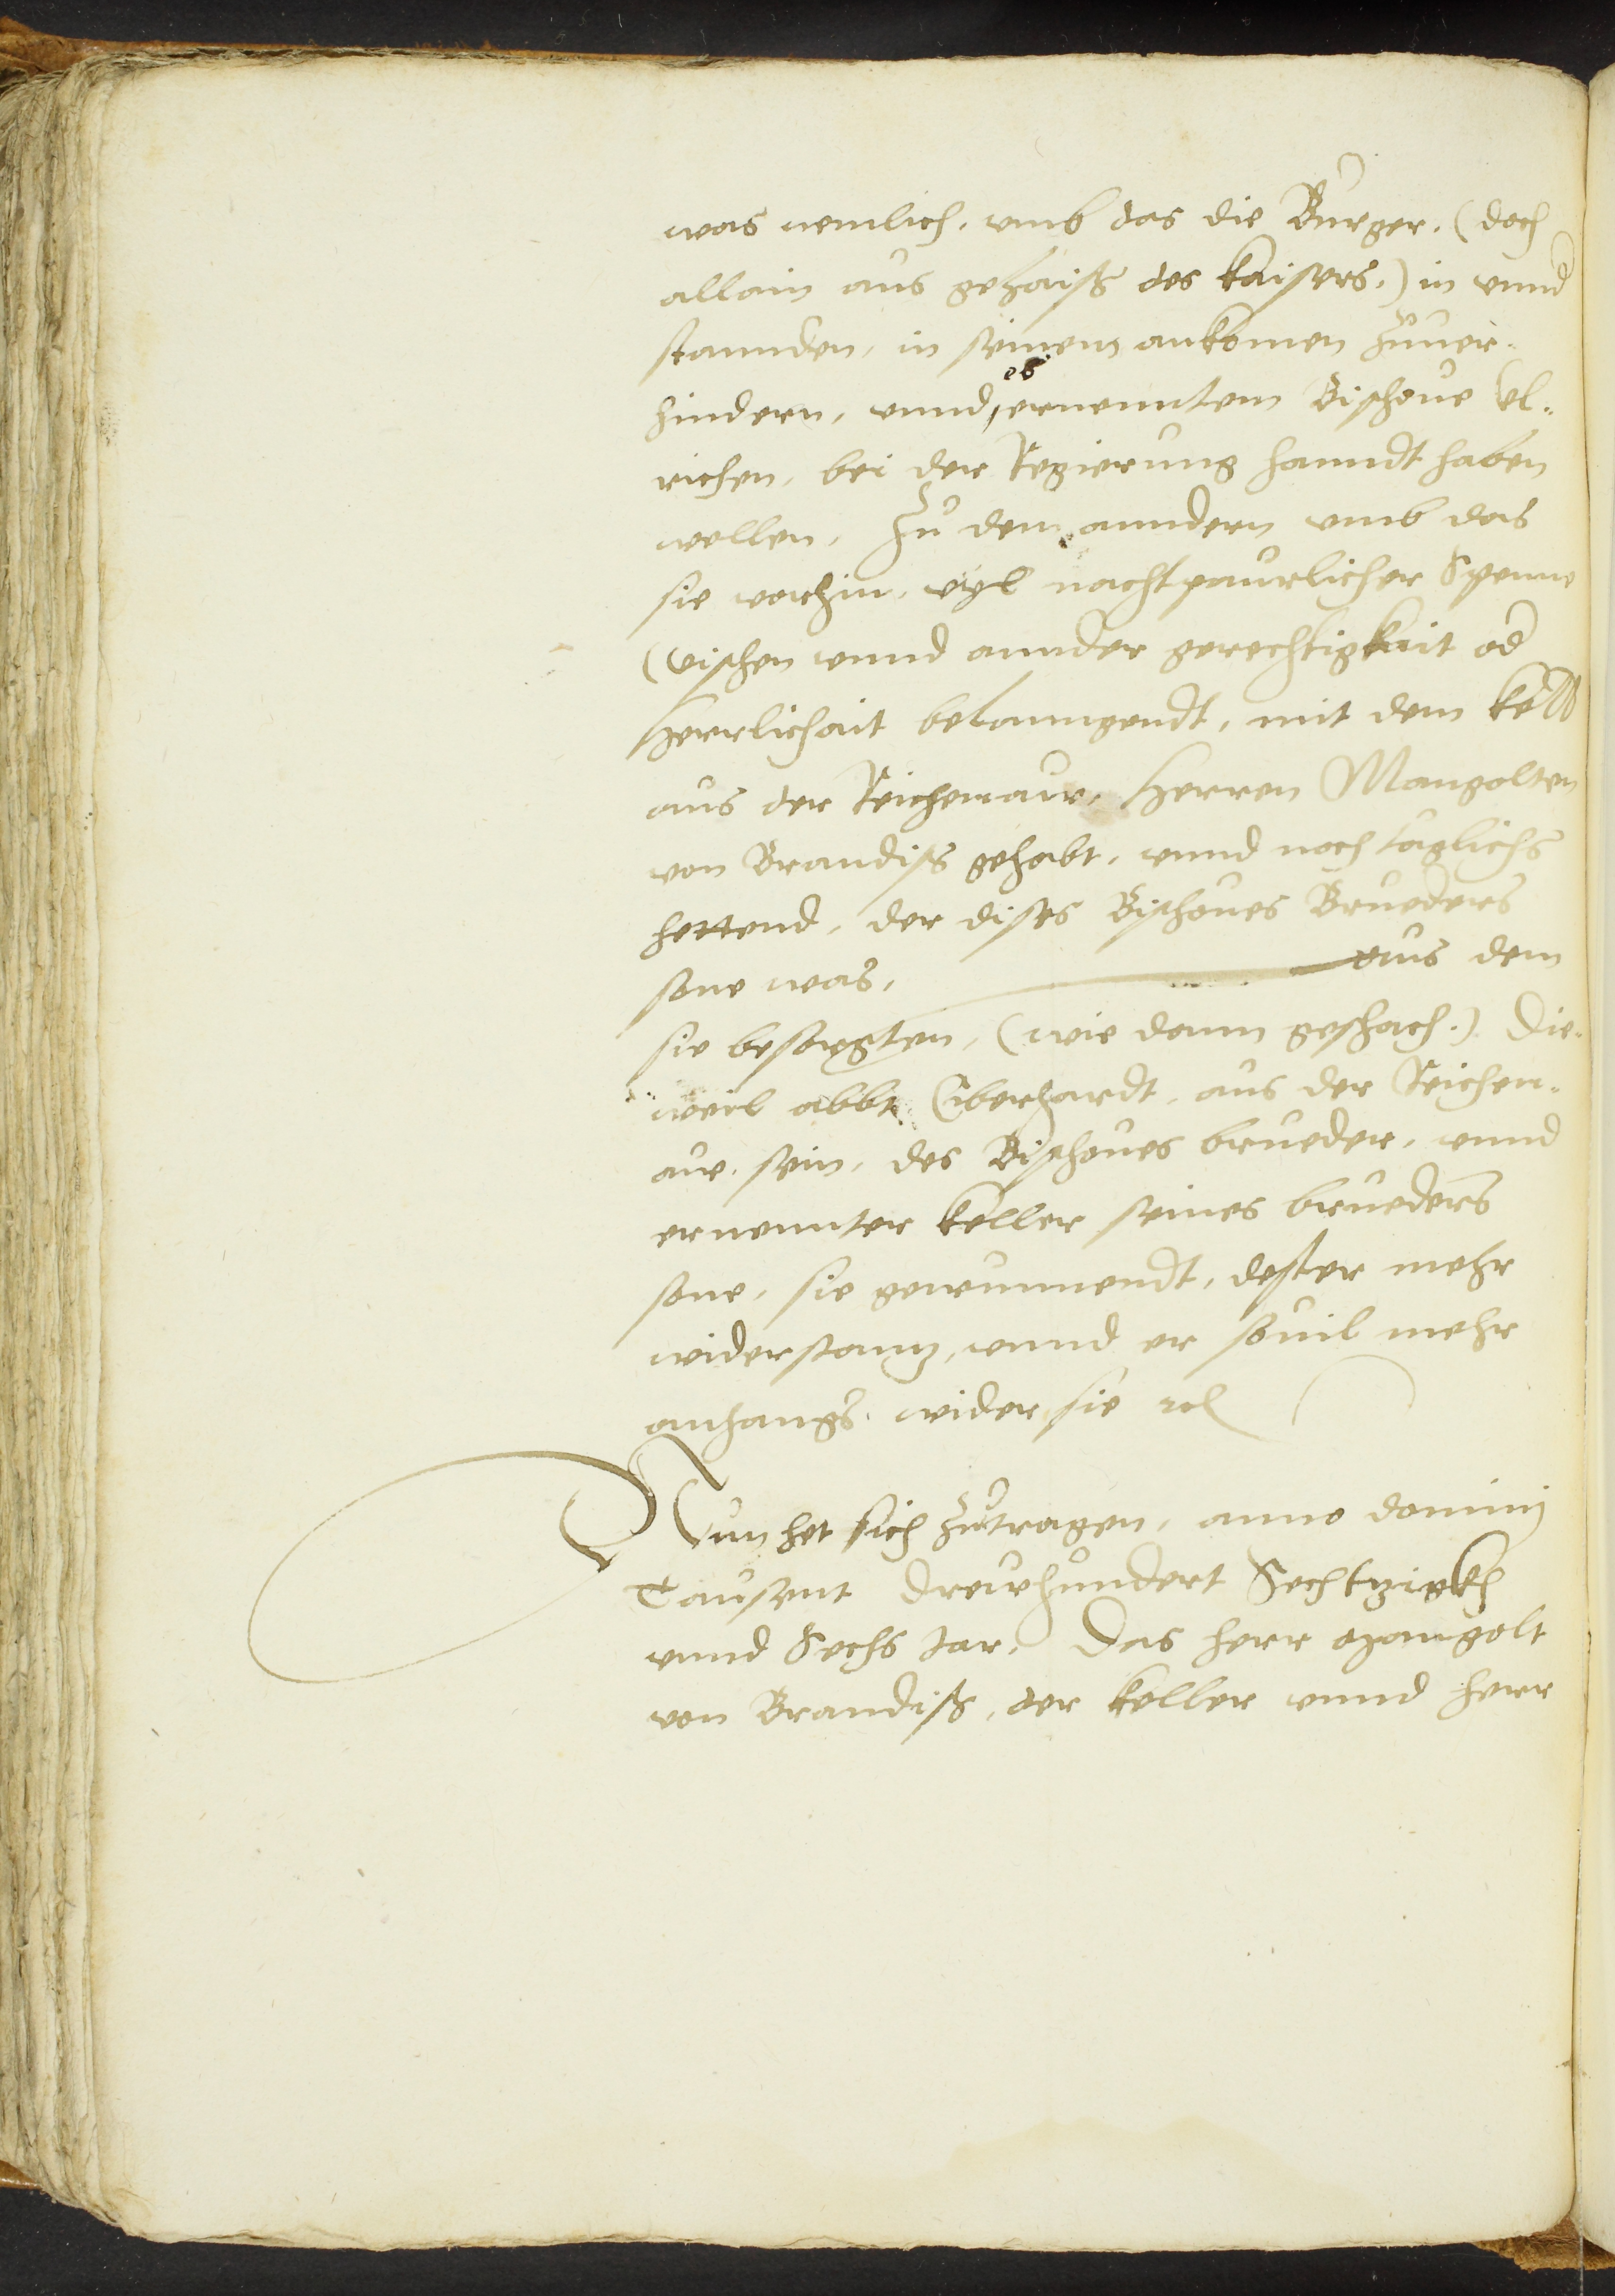 was nemlich, vmb das die Burger, (doch
allain aus gehaiß des kaisers,) in vnnd
stannden, in seinem ankomen zuuer-
hindern, vnnd ob ernenntem Bischoue Vl-
richen, bei der Regierung hanndt haben
wellen, Zu dem anndern vmb das
sie vorhin, vyl nachtpaurlicher Spenne
(vischen vnnd annder gerechtigkait od
herrlichait belanngendt, mit dem kell
aus der Reichenauw, Herren Mangolten
von Brandiß gehabt, vnnd noch täglichs
hettend, der dises Bischoues Brueders
sone was, aus dem
sie besorgten, (wie dann geschach.) Die-
weil abbt Eberhardt, aus der Reichen-
auw, sein, des Bischoues brueder, vnnd
ernennter keller seines brueders
sone, sie gewunnendt, dester mehr
widerstannz, vnnd er souil mehr
anhangs wider sie
Nun het sich zutragen, anno dominj
Tausent Drewhundert Sechtzigkh
vnnd Sechs Jar, Das herr Mangolt
von Brandiß, der keller vnnd herr